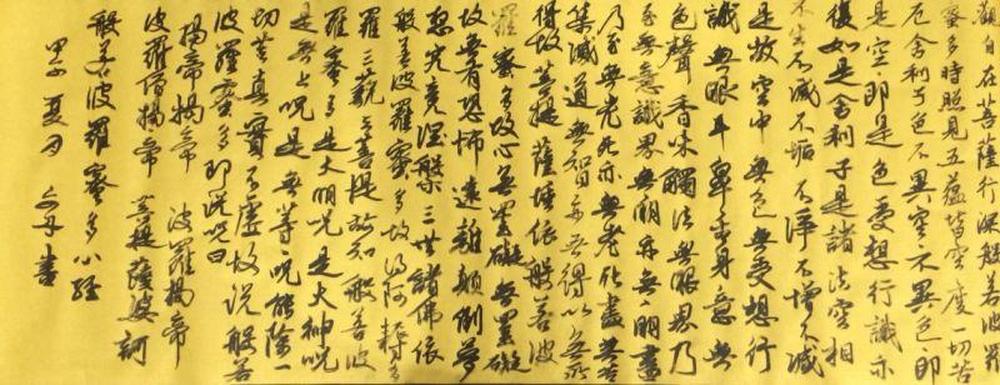 觀自在菩薩行深般若波羅
蜜多時照見五蘊皆空度一切苦
厄舍利子色不異空不異色即
是空即是色受想行識亦
復如是舍利子是諸法空相
不生不滅不垢不淨不增不減
是故空中無色無受想行
識無眼耳鼻舌身意無
色聲香味觸法無眼界乃
至無意識界無明亦無明盡
乃至無老死亦無老死盡無苦
集滅道無智亦無得以無所
得故菩提薩埵依般若波
羅蜜多故心無罣礙無罣礙
故無有恐怖遠離顛倒夢
想究竟涅槃三世諸佛依
般若波羅蜜多故得阿耨多
羅三藐三菩提故知般若波
羅蜜多是大明咒是大神咒
是無上咒是無等咒能除一
切苦真實不虛故說般若
波羅蜜多即說咒曰
揭帝揭帝 波羅揭帝
波羅僧揭帝 菩提薩婆訶
般若波羅蜜多心經
夏月 書